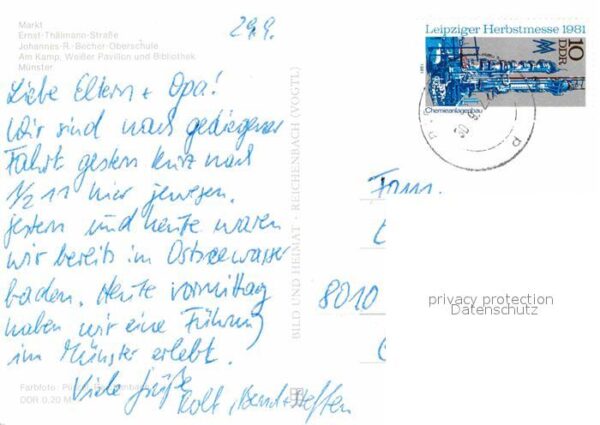 Markt
Ernst-Thälmann-Straße
Johannes-R.-Becher-Oberschule
Am Kamp, Weißer Pavillon und Bibliothek
Münster
29.9.
Liebe Eltern + Opa!
Wir sind nach gediegener
Fahrt gestern kurz nach
1/2 11 hier gewesen.
gestern und heute waren
wir bereits im Ostseewasser
baden. Heute vormittag
haben wir eine Führung
im Münster erlebt.
Viele Grüße
Rolf, + Steffen
Farbfoto:
DDR 0,20 M
BILD UND HEIMAT · REICHENBACH (VOGTL)
Leipziger Herbstmesse 1981
10
DDR
Chemieanlagenbau
1981
Fam.
8010
privacy protection
Datenschutz